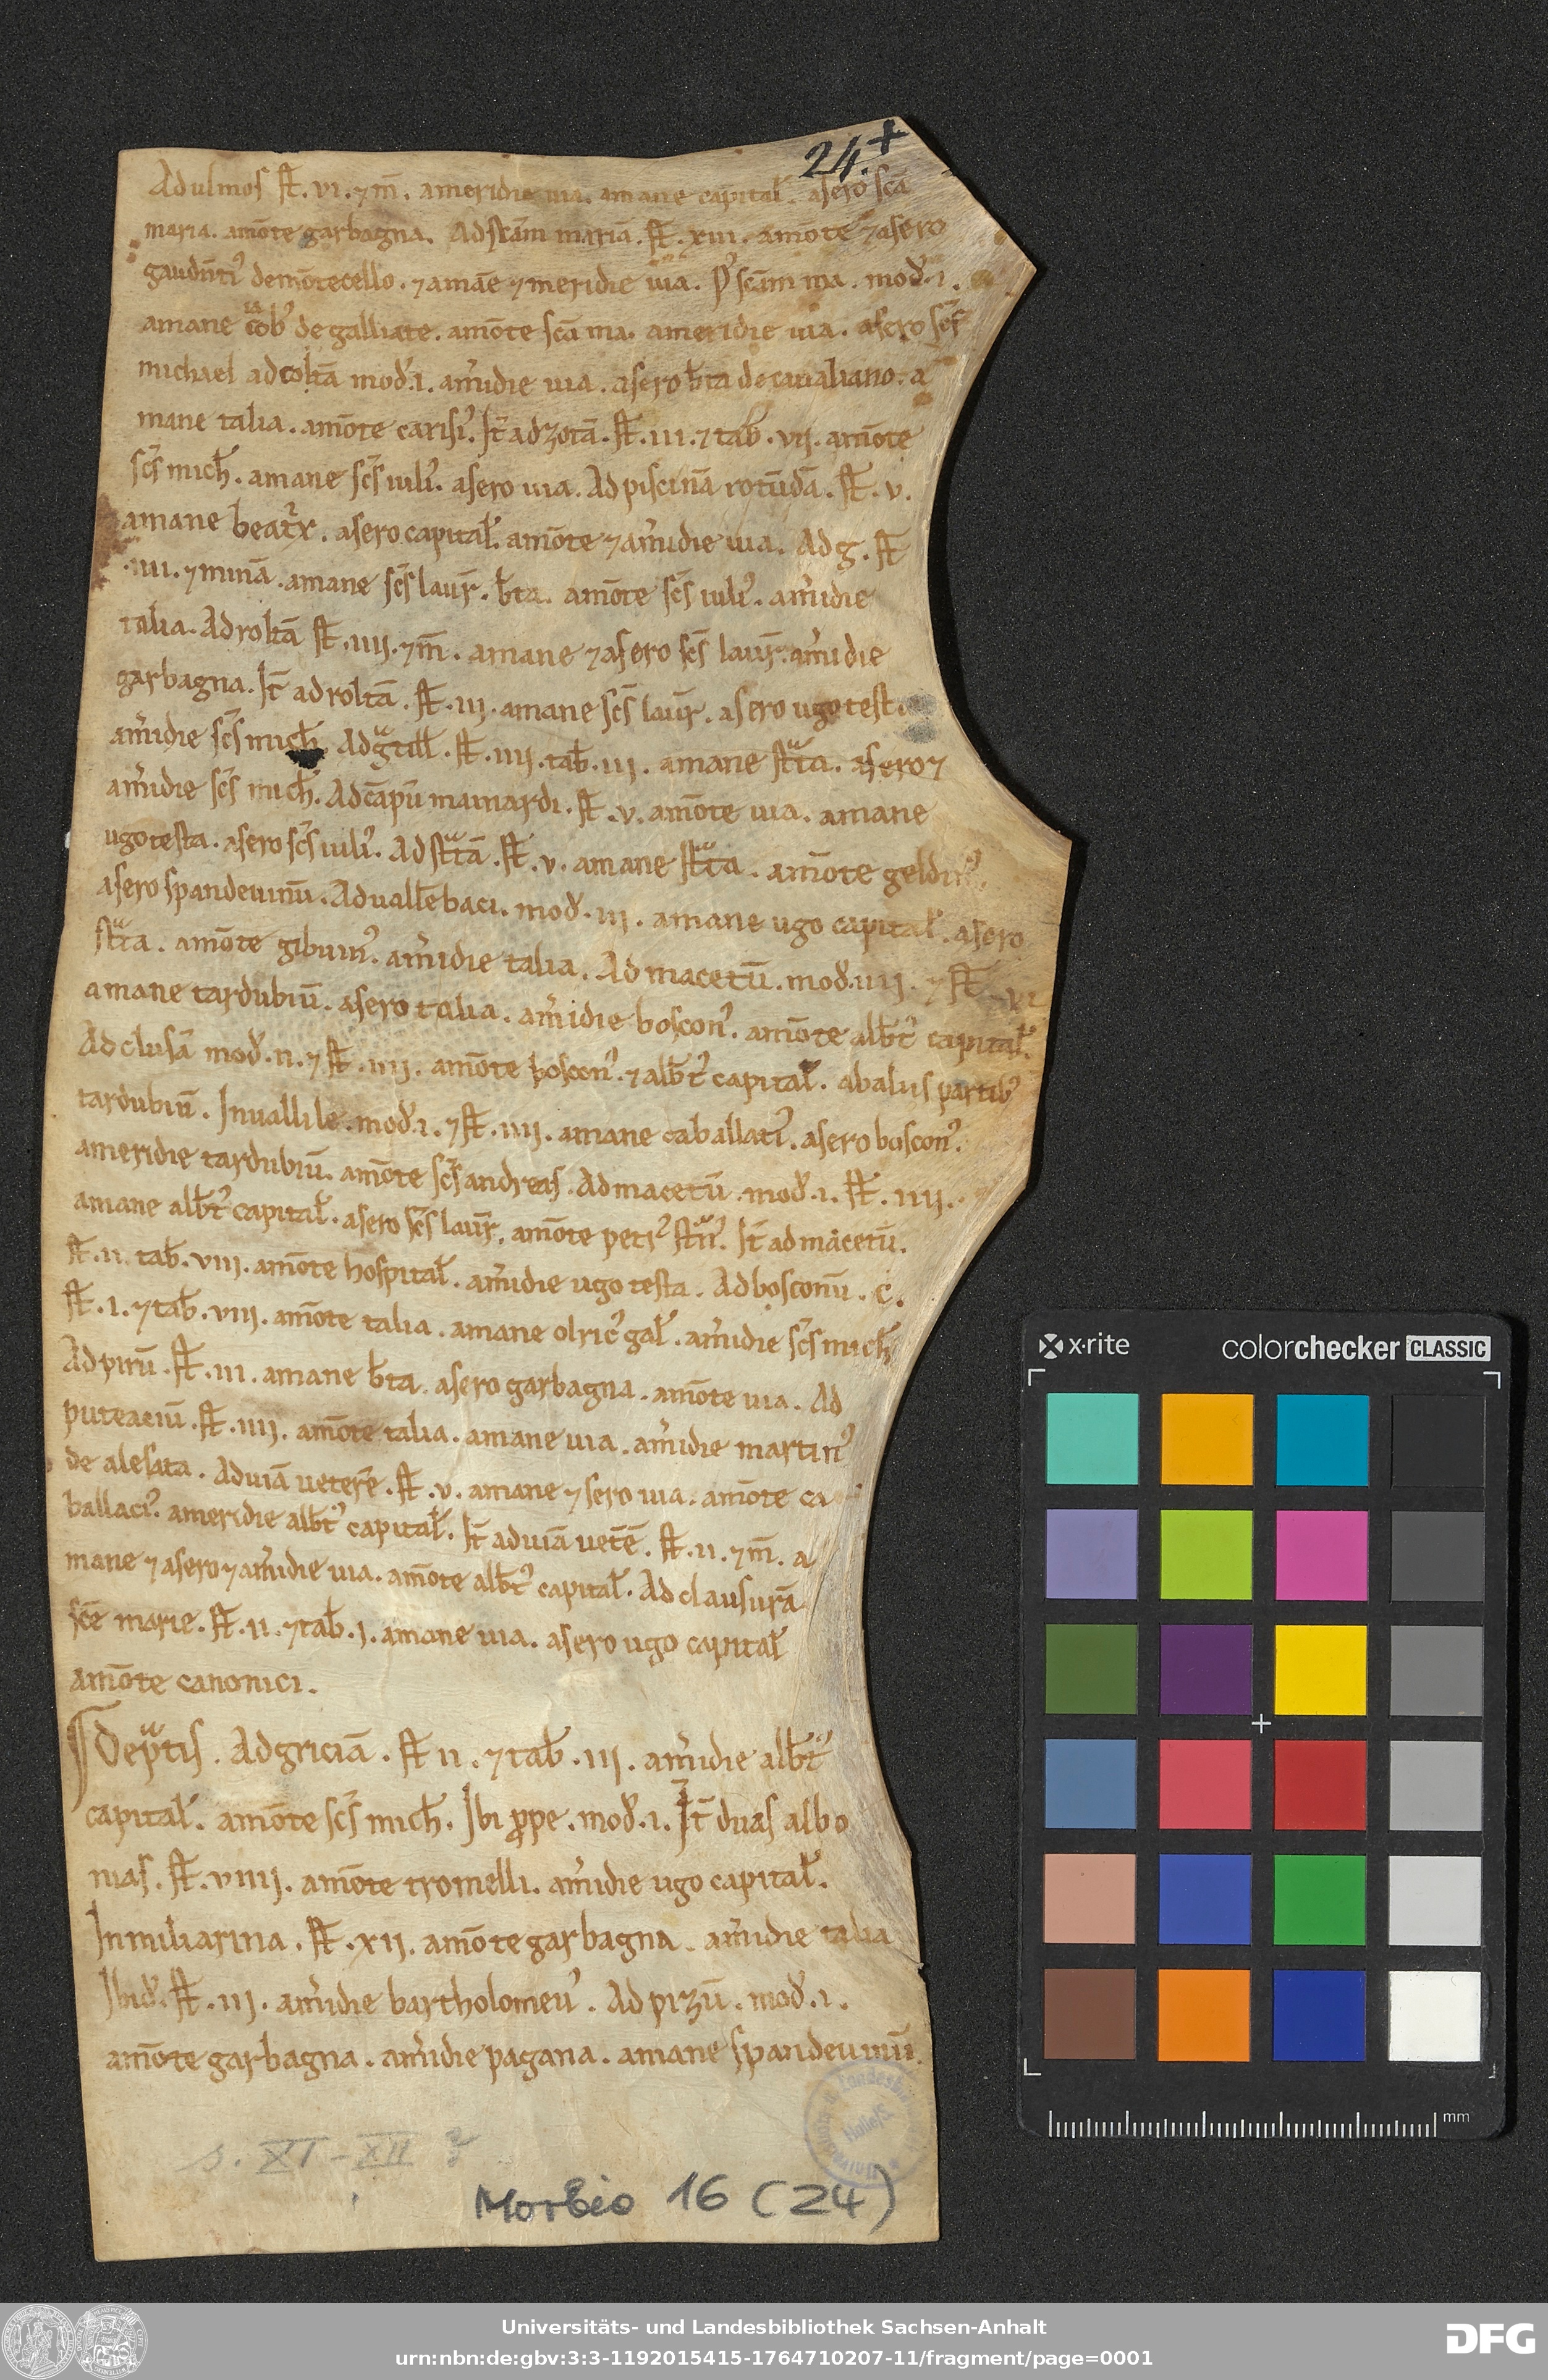 24.+
Ad ulmos st̄. vi. ⁊ m̄. ameridie uia. amane capital̄. asero scā
maria. amōte garbagna. Ad scām mariā. st̄. xiii. amōte ⁊ asero
gaudūtꝰ demōtecello. ⁊ amāe ⁊ meridie uia. scām ma. mod̄. i.
amane iacob̄ de galliate. amōte scā ma. ameridie uia. asero scs̄
michael ad coltā mod̄. i. am̄idie uia. asero b̄ta de caualiano. a
mane talia. amōte carisiꝰ. It̄ ad zotā. st̄. iii. ⁊ tab̄. vii. amōte
scs̄ mich̄. amane scs̄ iuliꝰ. asero uia. Ad piscinā rotūdā. st̄. v.
amane beatͥx. asero capital̄. amōte ⁊ am̄idie uia. Ad g. st̄
.iiii. ⁊ minā. amane scs̄ laur̄. b̄ta. amōte scs̄ iuliꝰ. am̄idie
talia. Ad roltā st̄. iiii. ⁊ m̄. amane ⁊ asero scs̄ laur̄. am̄idie
garbagna. It̄ ad roltā. st̄. iii. amane scs̄ laur̄. asero ugo testa
am̄idie scs̄ mich̄. st̄. iiii. tab̄. iii. amane stᷓta. asero ⁊
am̄idie scs̄ mich̄. Ad cāpū mainardi. st̄. v. amōte uia. amane
ugo testa. asero scs̄ iuliꝰ. Ad stᷓtā. st̄. v. amane stᷓta. amōte
asero spandeuinū. Ad uall̄ebaci. mod̄. iii. amane ugo capital̄. asero
stᷓta. amōte gibuinꝰ. am̄idie talia. Ad macetū. mod̄. iiii. ⁊ st̄ vi
amane tardubiū. asero talia. am̄idie bosconꝰ. amōte alb̄tꝰ capital̄.
Ad clusā mod̄. ii. ⁊ st̄. iiii. amōte bosconꝰ. ⁊ alb̄tꝰ capital̄. ab aliis partibꝰ
tardubiū. In uallile. mod̄. i. ⁊ st̄. iiii. amane caballatiꝰ. asero bosconꝰ.
ameridie tardubiū. amōte scs̄ andreas. Ad macetū. mod̄. i. st̄. iiii.
amane alb̄tꝰ capital̄. asero scs̄ laur̄. amōte petrꝰ It̄ ad macetū.
st̄. ii. tab̄. viii. amōte hospital̄. am̄idie ugo testa. Ad bosconū. c.
st̄. i. ⁊ tab̄. viii. amōte talia. amane olricꝰ gal̄. am̄idie scs̄ mich̄
Ad pirū. st̄. iii. amane b̄ta. asero garbagna. amōte uia. Ad
puteaciū. st̄. iiii. amōte talia. amane uia. am̄idie martinꝰ
de alesata. Ad uiā ueterē. st̄. v. amane ⁊ sero uia. amōte ca
ballaciꝰ. ameridie alb̄tꝰ capital̄. It̄ ad uiā uet̄ē. st̄. ii. ⁊ m̄. a
mane ⁊ asero ⁊ am̄idie uia. amōte alb̄tꝰ capital̄. Ad clausurā
scē marie. st̄. ii. ⁊ tab̄. i. amane uia. asero ugo capital̄
amōte canonici.
De pᷓtis. Ad griciā. st̄ ii. ⁊ tab̄. iii. am̄idie alb̄tꝰ
capital̄. amōte scs̄ mich̄. Ibi ꝓpe. mod̄. i. It̄ duas albo
nias. st̄. viiii. amōte tromelli. am̄idie ugo capital̄.
In miliarina. st̄. xii. amōte garbagna. am̄idie talia
Ibid̄. st̄. iii. am̄idie bartholomeuꝰ. Ad pizū. mod̄. i.
amōte garbagna. am̄idie pagana. amane spandeuinū.
s. XI-XII ?
Morbio 16 (24)
x-rite
colorchecker CLASSIC
mm
Universitäts- und Landesbibliothek Sachsen-Anhalt
urn:nbn:de:gbv:3:3-1192015415-1764710207-11/fragment/page=0001
DFG